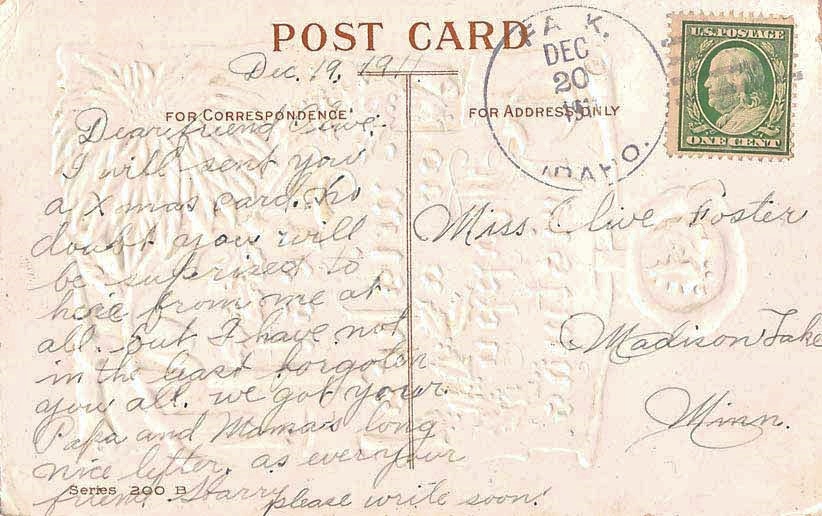 POST CARD
Dec. 19, 1911.
FOR CORRESPONDENCE
Dear friend Olive.
I will sent you
a Xmas card. No
doubt you will
be suprized to
here from me at
all. but I have not
in the least forgoten
you all. we got your
Papa and Mama's long
nice letter. as ever your
friend Harry
please write soon!
Series 200 B
FOR ADDRESS ONLY
DEC
20
IDAHO.
U.S. POSTAGE
ONE CENT
Miss. Olive Foster
Madison Lake
Minn.